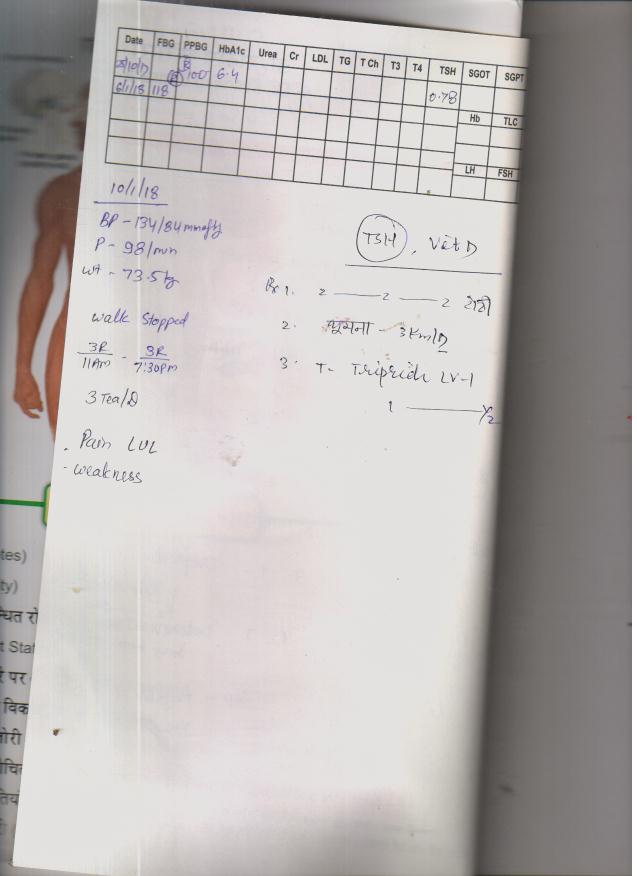 Date FBG PPBG HbA1c Urea Cr LDL TG T Ch T3 T4 TSH SGOT SGPT
100 6.4
6/1/18 118 0.78
Hb TLC
LH FSH
10/1/18
BP - 134/84 mmHg
P - 98/min
wt - 73.5 kg
walk Stopped
3R - 3R
11AM 7:30PM
3 Tea/D
. Pain LUL
- weakness
TSH , Vit D
1. 2 — 2 — 2 रोटी
2. घूमना - 3 Km/D
3. T- Tripride LV-1
1 — 1/2
tes)
ty)
t Stat
र पर
विक
तियं